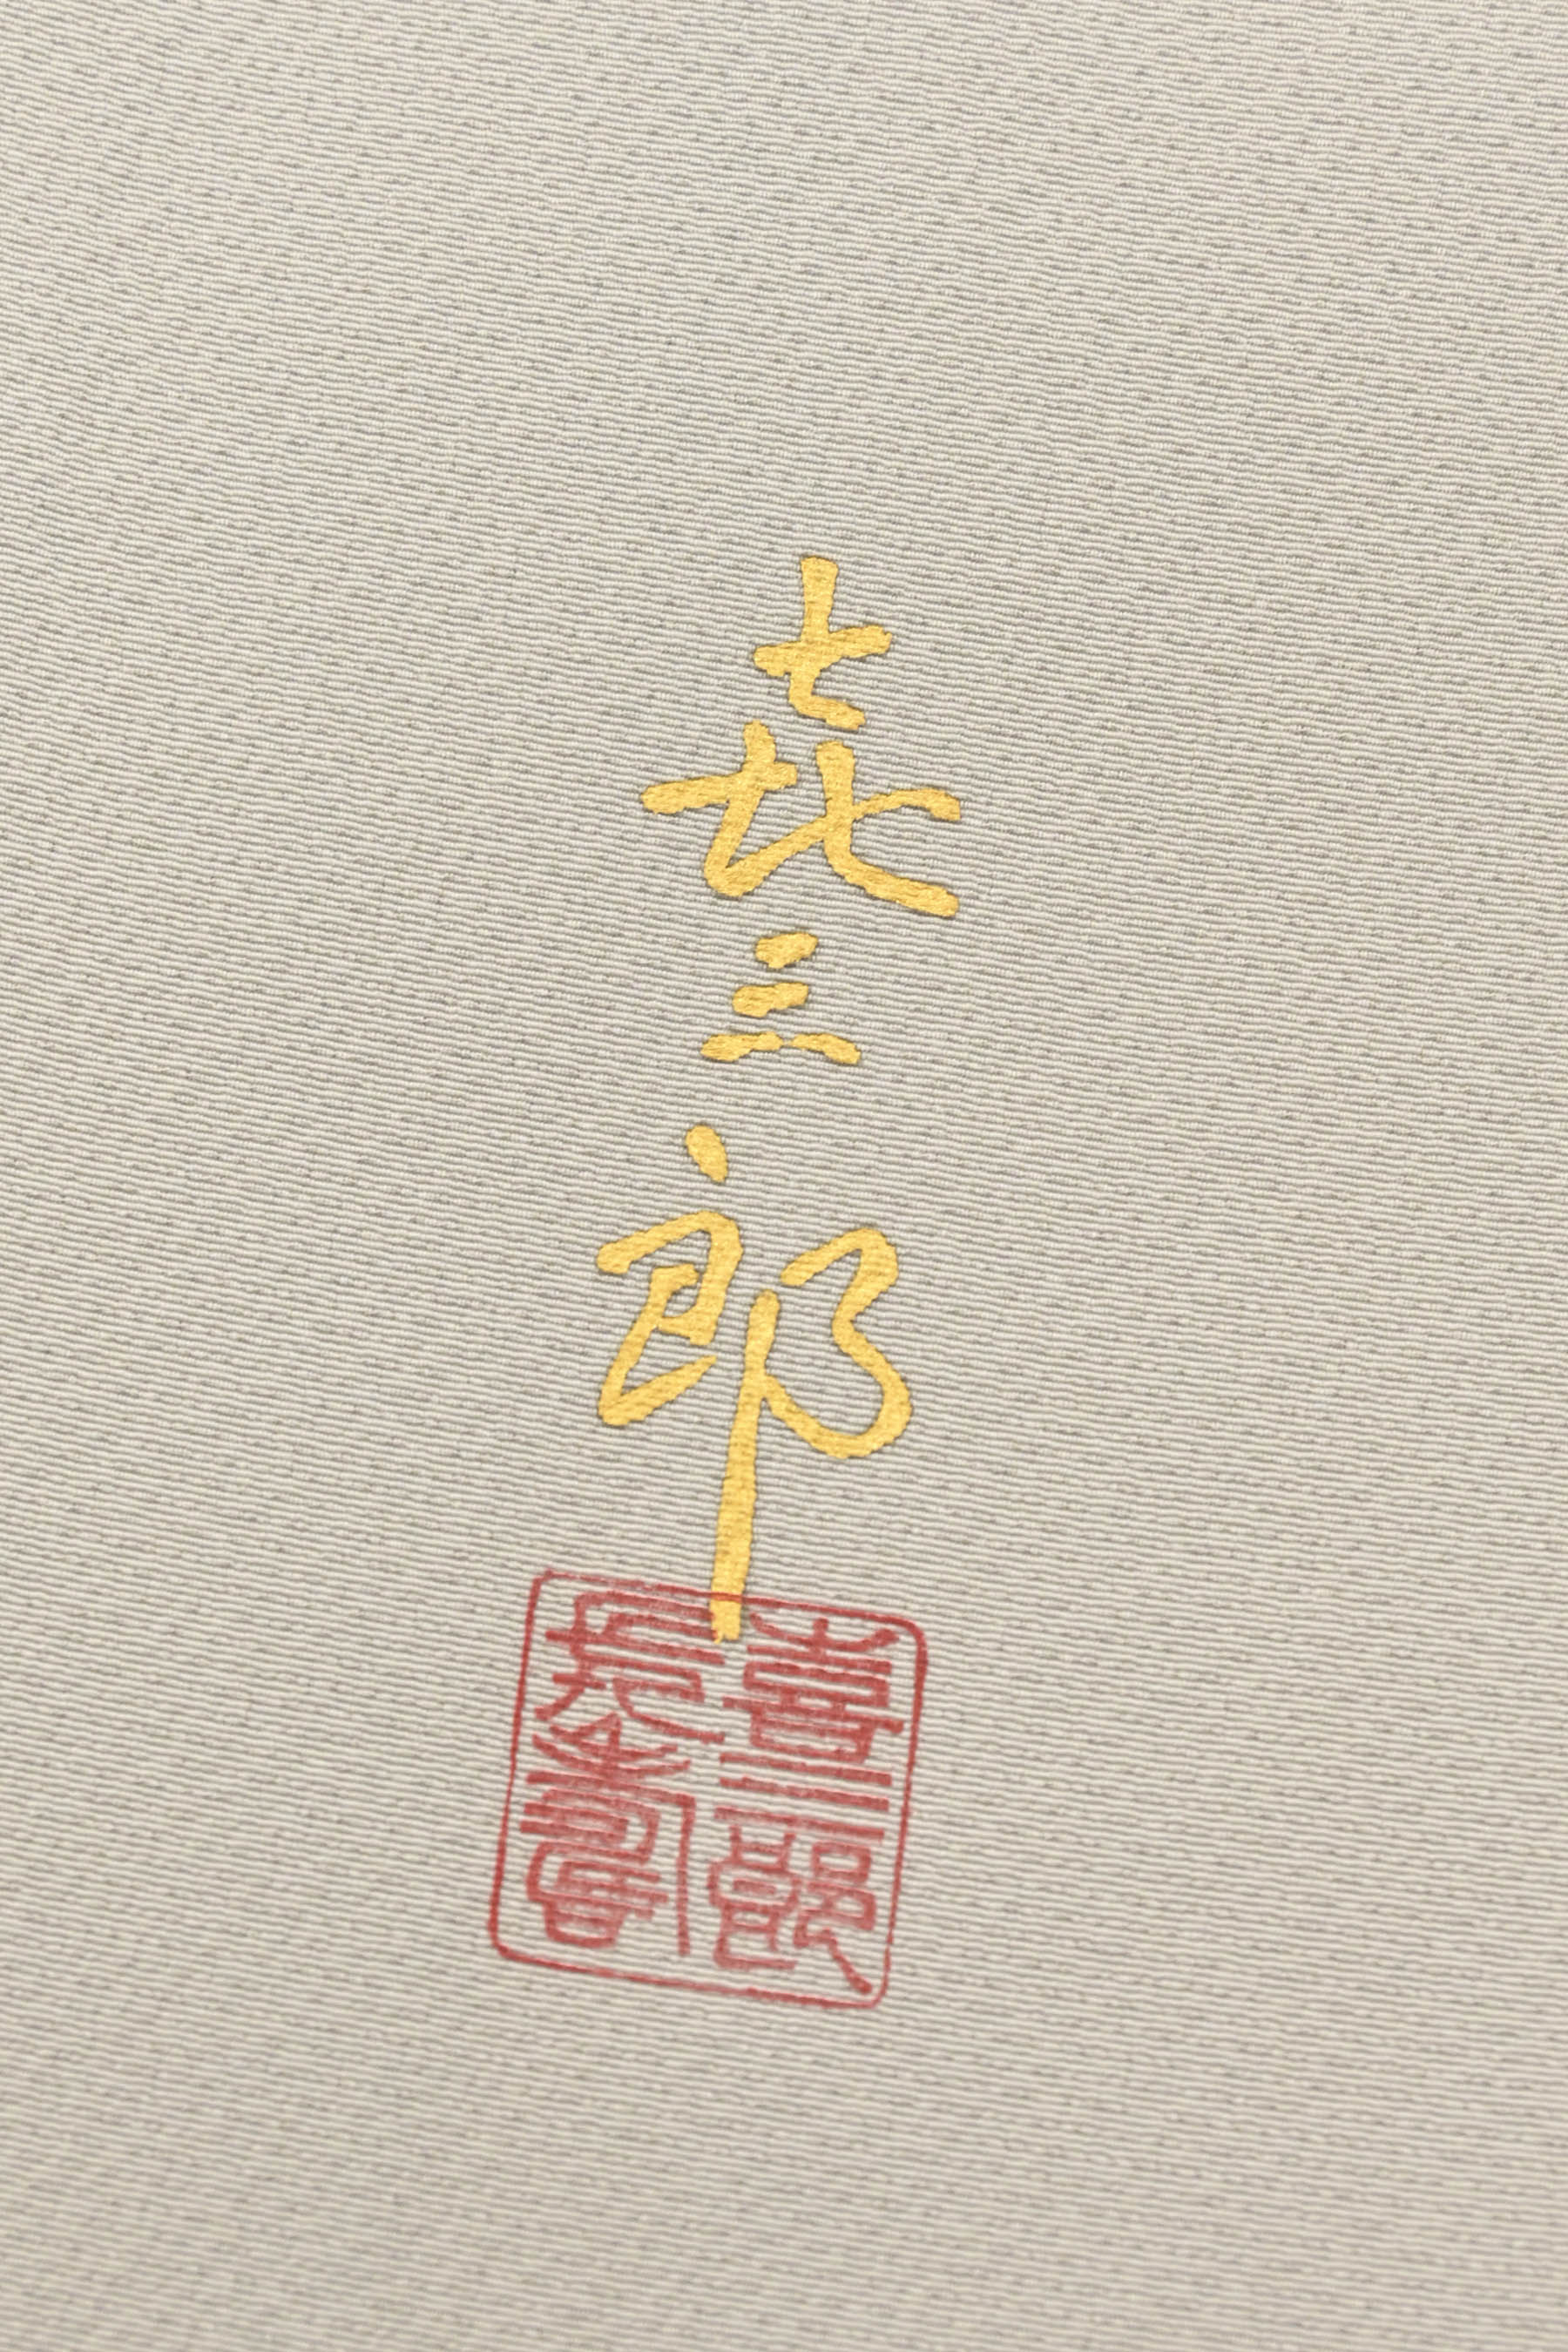 㐂三郎
喜三郎